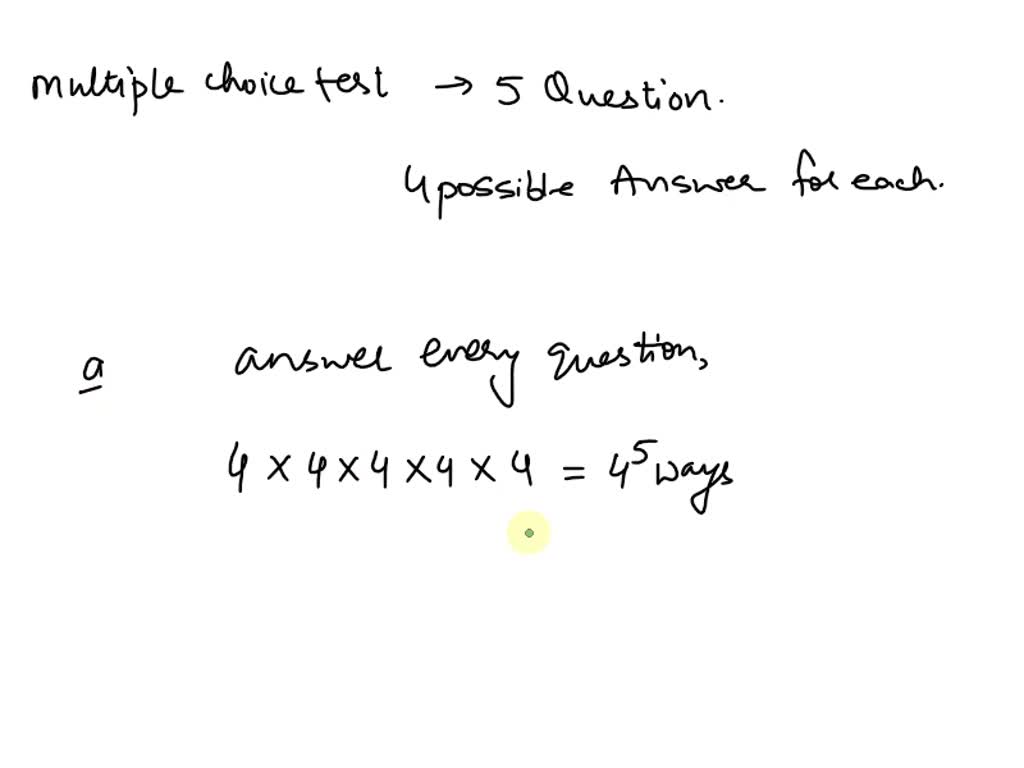 multiple choice test → 5 Question.
4 possible Answer for each.
a answer every question,
4 × 4 × 4 × 4 × 4 = 4⁵ ways